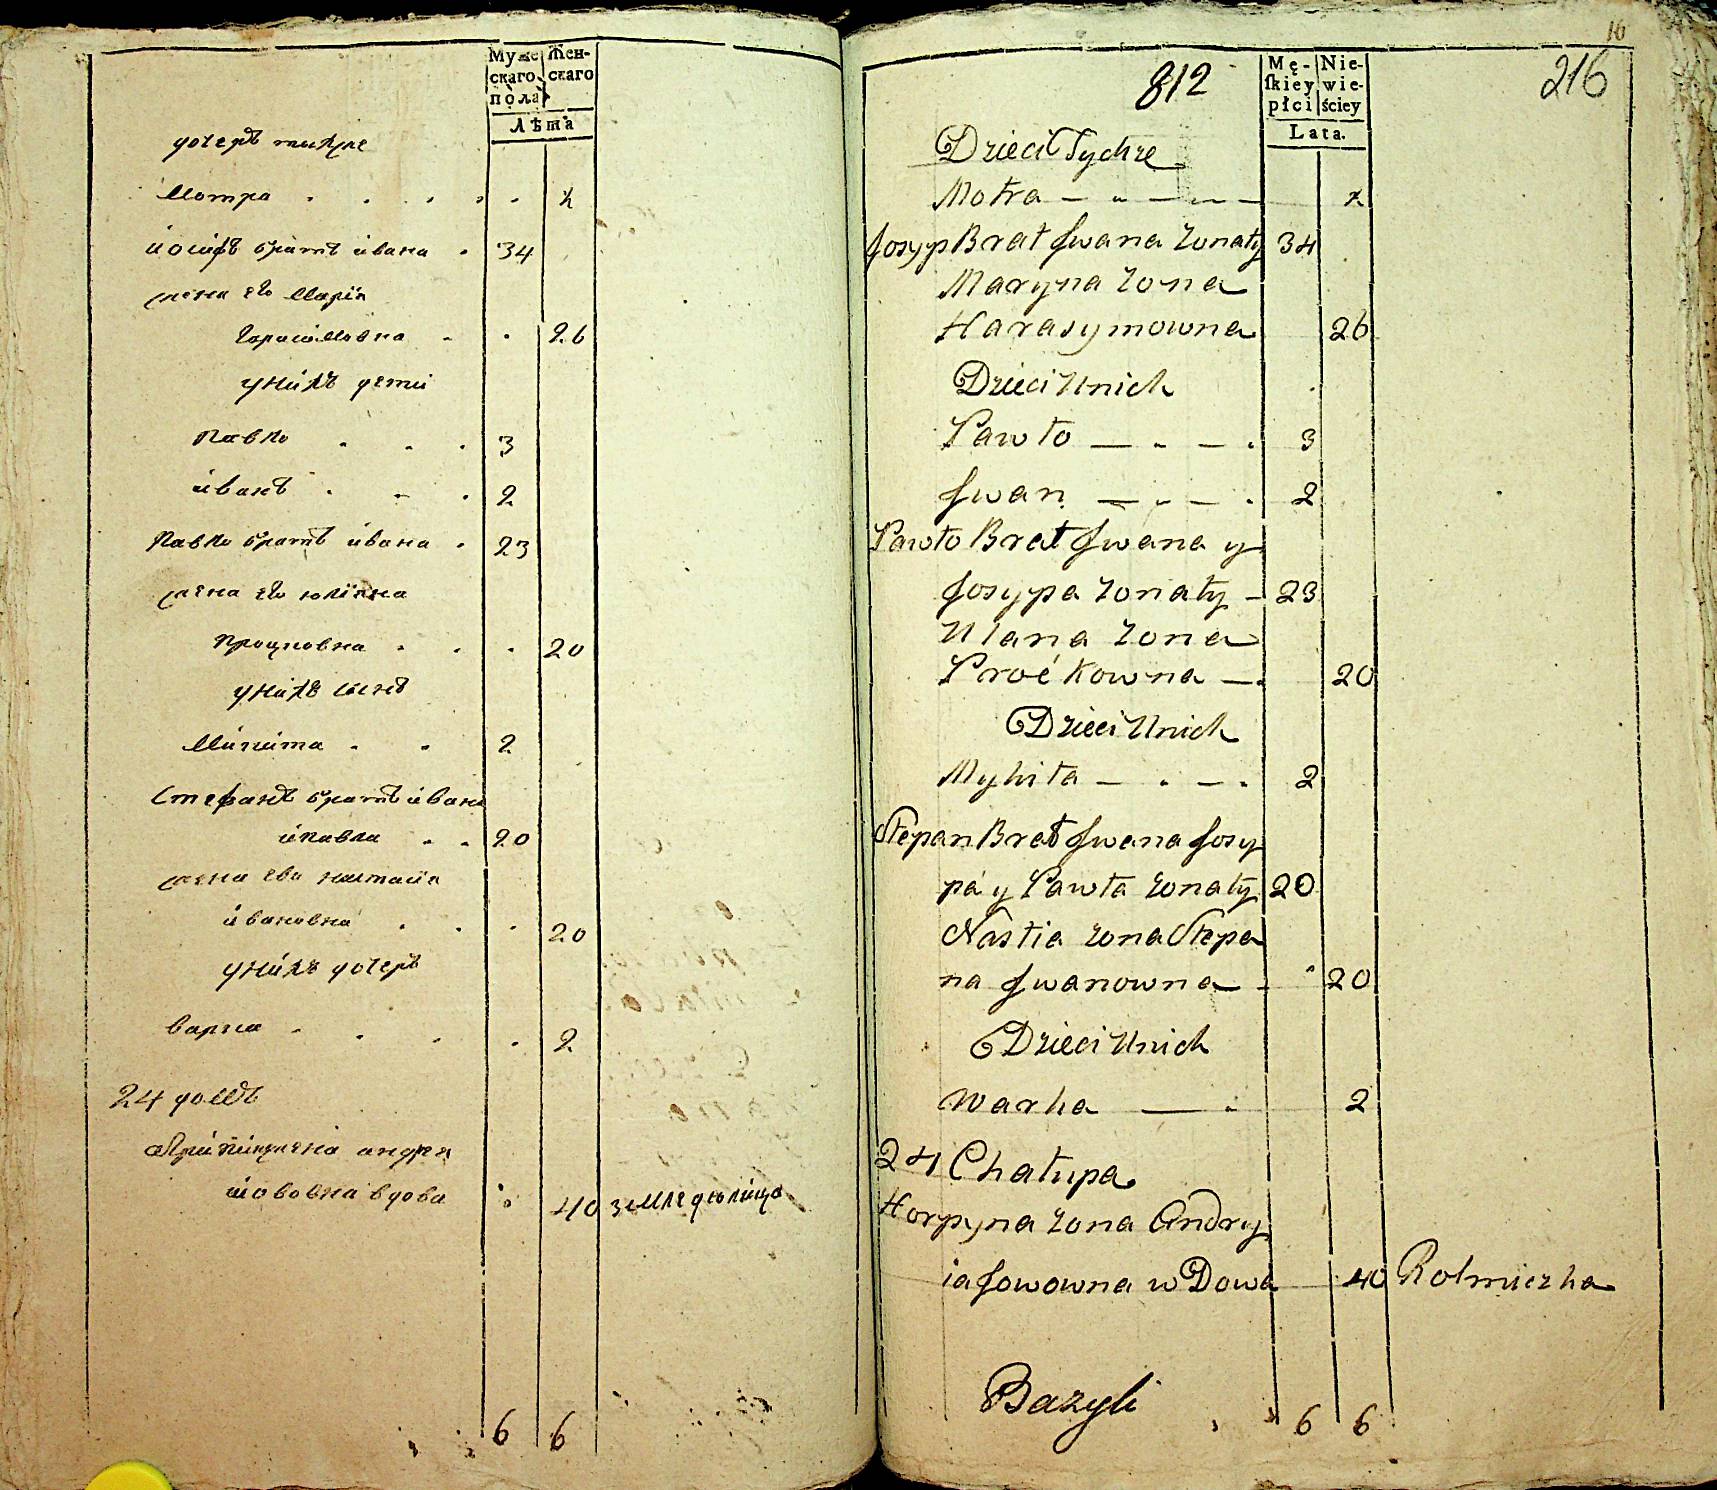 Муже
скаго
пола
Жен-
скаго
Лѣта
дочеръ тихъже
Мотра . . . . . 2
иосифъ братъ ивана . 34
жена его Марія
Герасимовна . . 26
унихъ дети
Павло . . . 3
иванъ . . . 2
Павло братъ ивана . 23
жена его юліяна
Процковна . . . 20
унихъ сынъ
Микита . . 2
Стефанъ братъ ивана
ипавла . . 20
жена его настасія
ивановна . . . 20
унихъ дочеръ
варка . . . . 2
24 домъ
андрея
иововна вдова . 40
6 6
10
812
216
Mę-
skiey
płci
Nie-
wie-
ściey
Lata.
Dzieci Tychże
Motra — „ — „ — 2
Josyp Brat Jwana żonaty 34
Maryna żona
Harasymowna 26
Dzieci Unich
Pawło — . — . 3
Jwan — . — . 2
Pawło Brat Jwana y
Josypa żonaty — 23
Ulana żona
Proćkowna — . 20
Dzieci Unich
Mykita — . — . 2
Stepan Brat Jwana Josy
pa y Pawła żonaty 20
Nastia żona Stepa
na Jwanowna — 20
Dzieci Unich
Warka — . 2
24 Chałupa
Horpyna żona Andry
ia Jowowna wDowa 40 Rolniczka
Bazyli
6 6